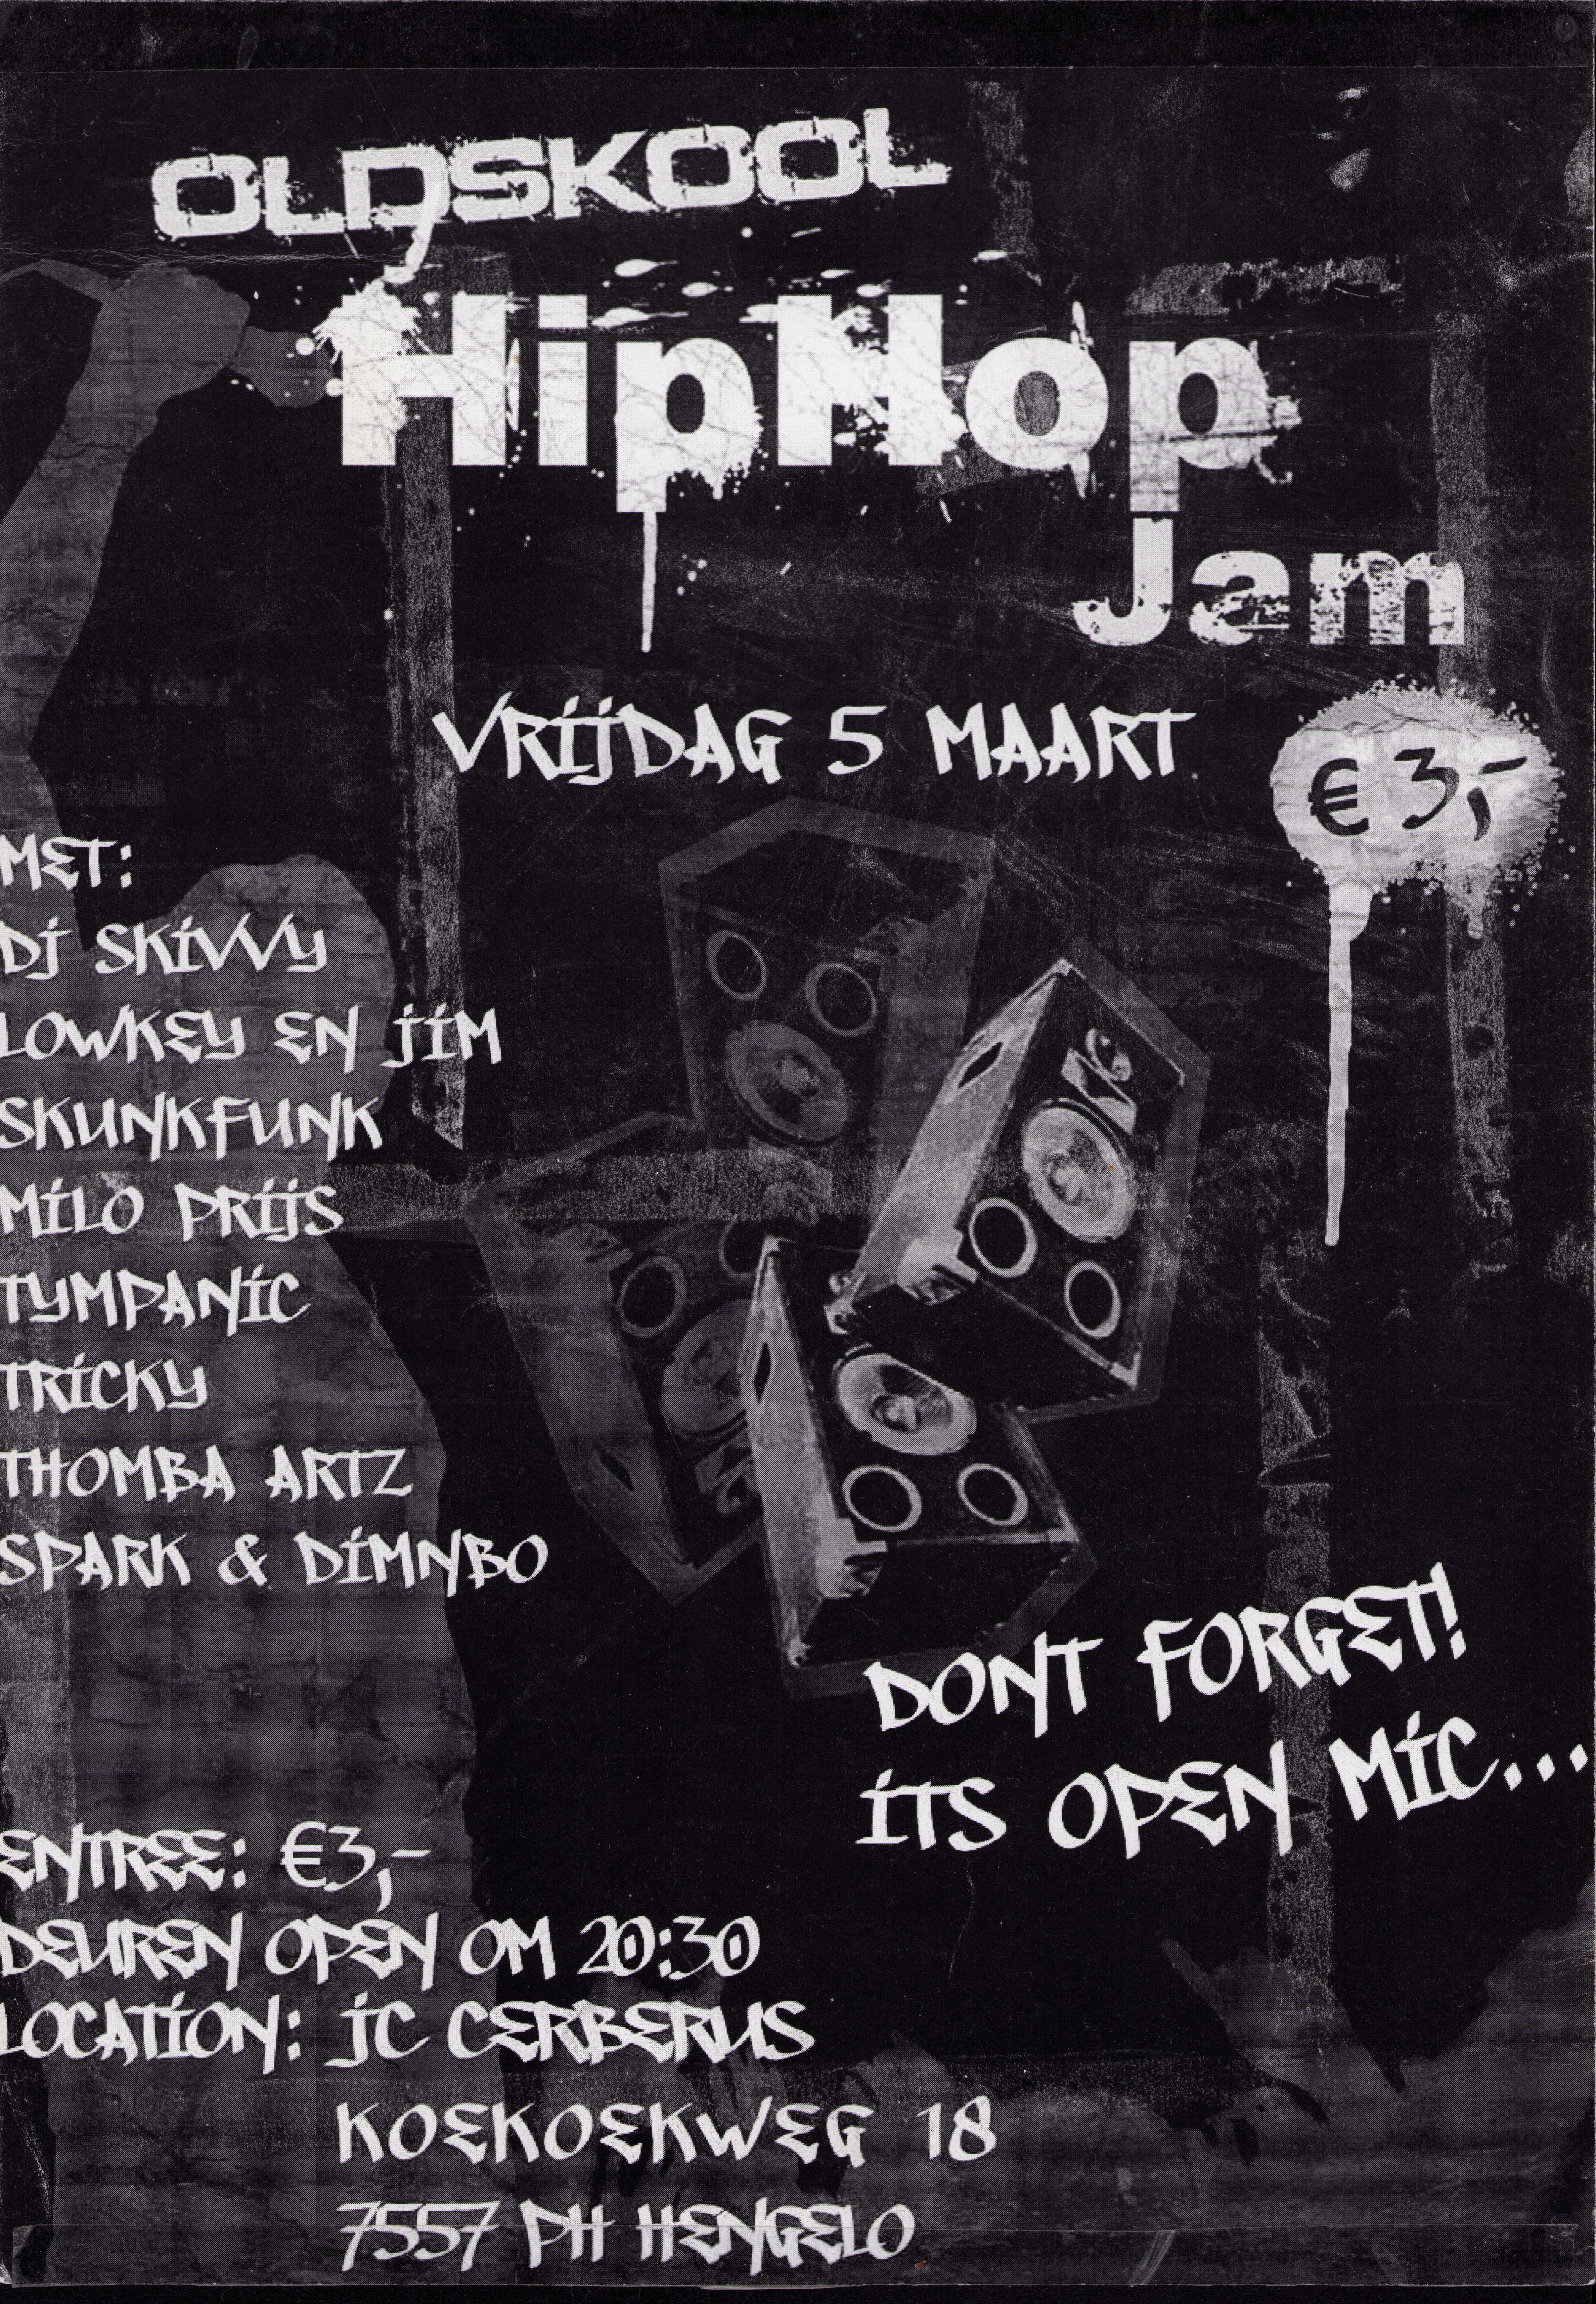 OLDSKOOL
HipHop
Jam
VRIJDAG 5 MAART
€ 3,-
MET:
DJ SKIVVY
LOWKEY EN JIM
SKUNKFUNK
MILO PRIJS
TYMPANIC
TRICKY
THOMBA ARTZ
SPARK & DIMNBO
DONT FORGET!
ITS OPEN MIC...
ENTREE: €3,-
DEUREN OPEN OM 20:30
LOCATION: JC CERBERUS
KOEKOEKWEG 18
7557 PH HENGELO